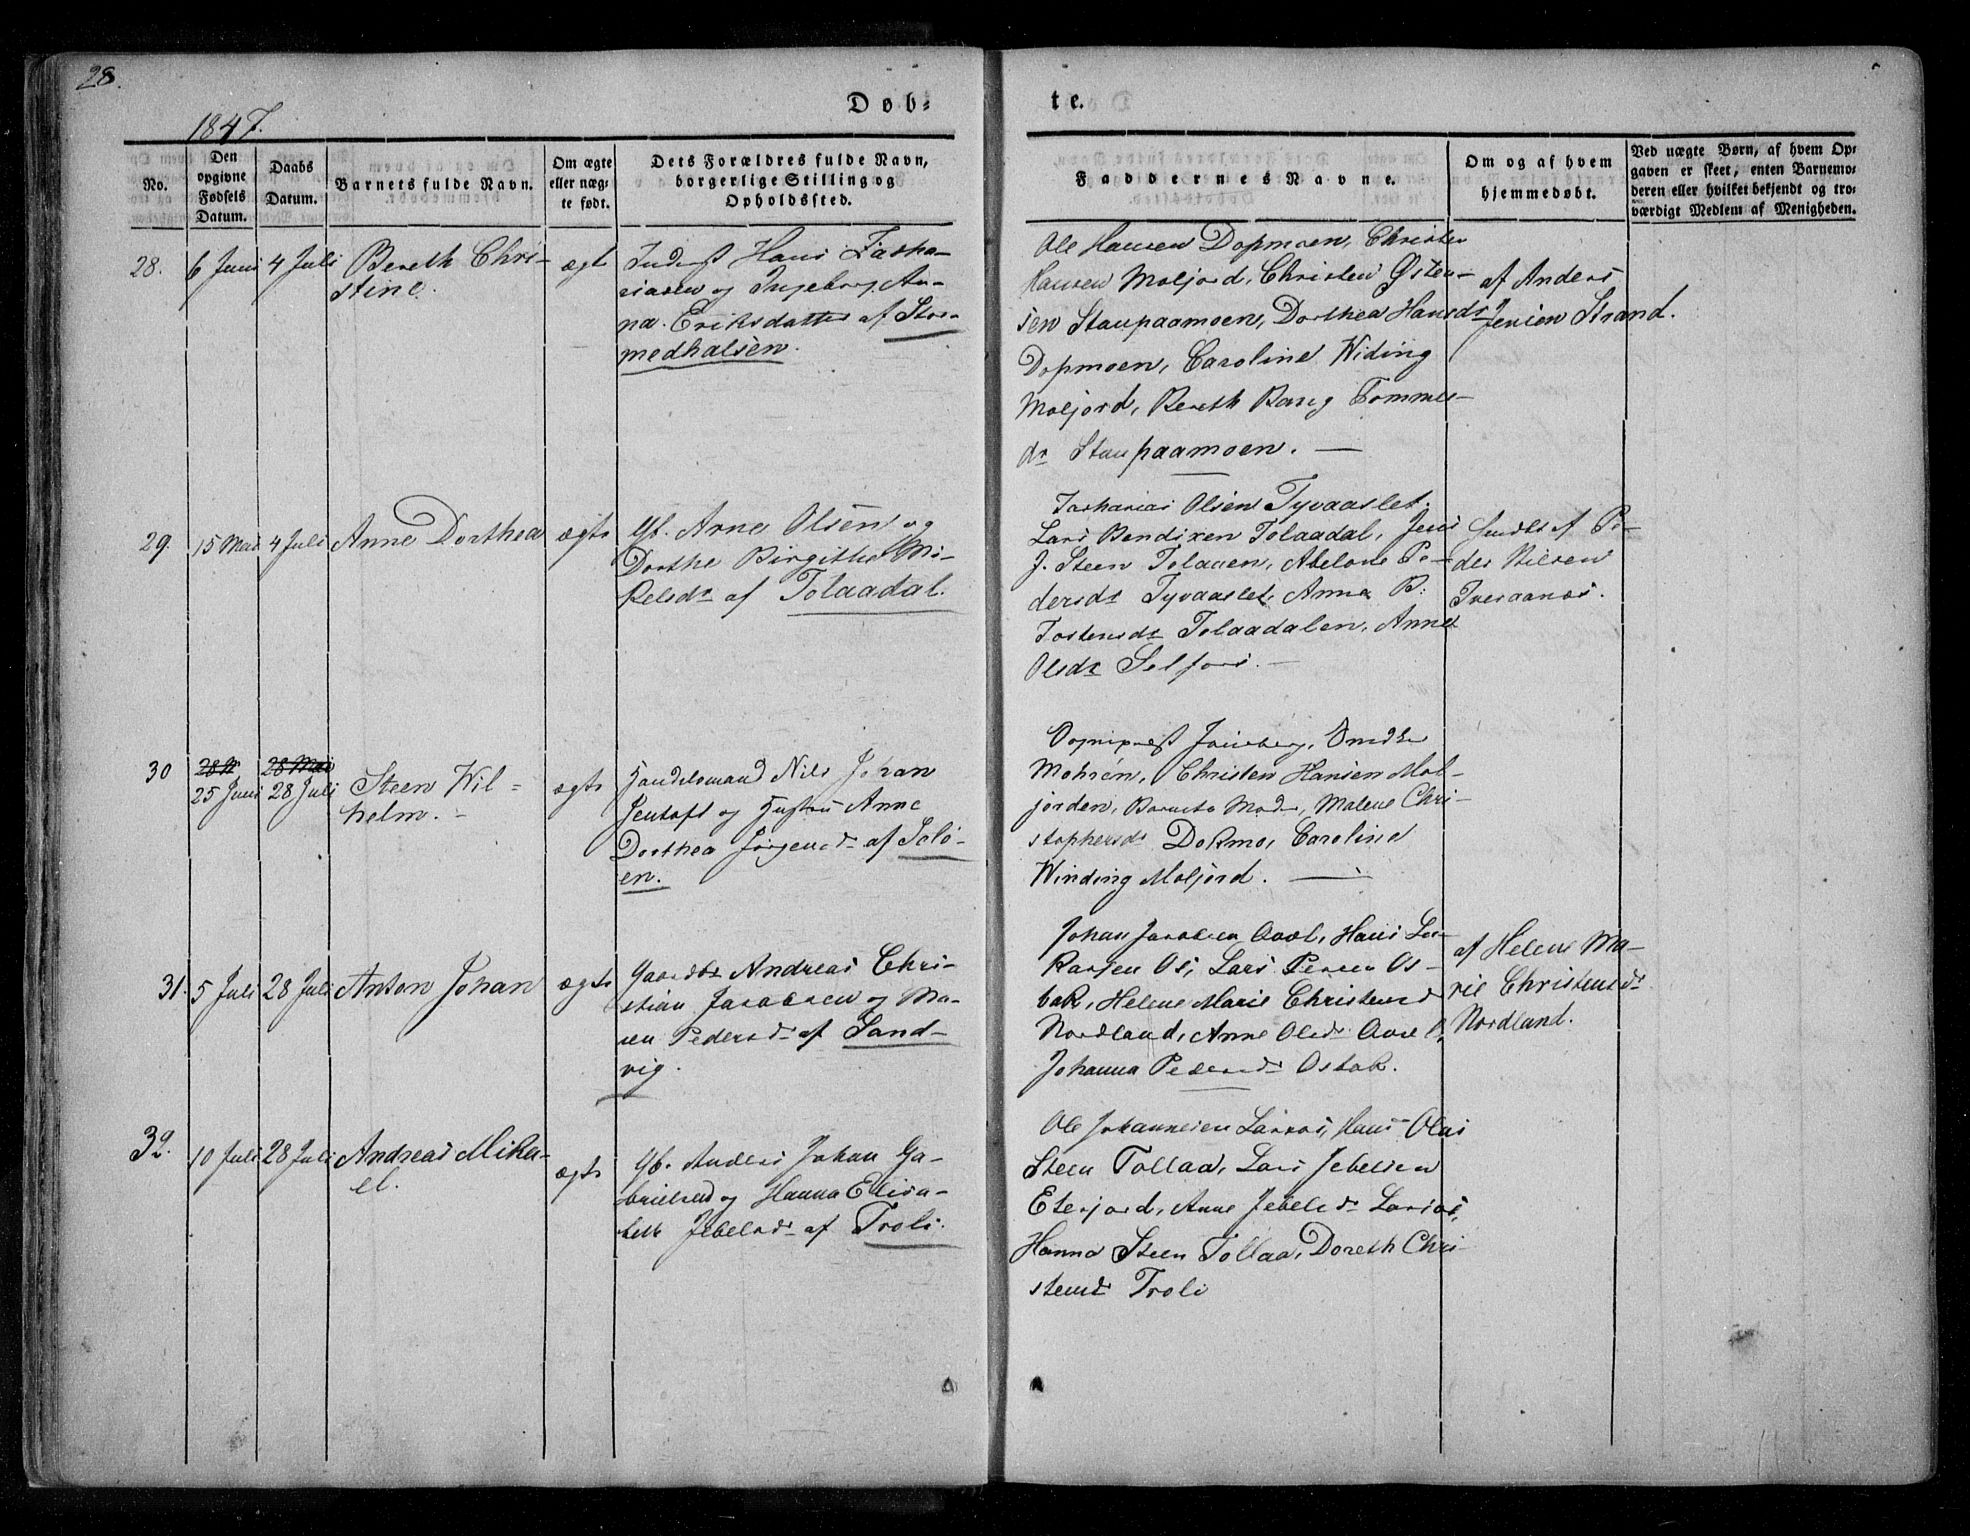 28.
1847.
Døb-
te.
No.
Den opgivne Fødsels Datum.
Daabs Datum.
Barnets fulde Navn.
Om ægte eller uægte født.
Dets Forældres fulde Navn, borgerlige Stilling og Opholdssted.
Faddernes Navne.
Om og af hvem hjemmedøbt.
Ved uægte Børn, af hvem Opgaven er skeet, enten Barnemoderen eller hvilket bekjendt og troværdigt Medlem af Menigheden.
28.
6 Juni
4 Juli
Bereth Chri-
stine.
ægte
Inderst Hans Zacha-
riasen og Ingeborg An-
na Eriksdatter af Stor-
medhalsen.
Ole Hansen Dopmoen, Christen
Hansen Moljord, Christen Østen-
sen Staupaamoen, Dorthea Hansdr
Dopmoen, Caroline Widing
Moljord, Bereth Bang Tommes-
dr Staupaamoen.
af Anders
Jensen Strand.
29.
15 Mai
4 Juli
Anne Dorthea
ægte
Gb. Arne Olsen og
Dorthe Birgitte Mi-
kelsdr af Tolaadal.
Zacharias Olsen Tyvaaslet.
Lars Bendixen Tolaadal, Jens
J. Steen Tolaaen, Abelone Pe-
dersdr Tyvaaslet, Anna B.
Tostensdr Tolaadalen, Anne
Olsdr Selfors.
af Pe-
der Nilsen
30
25 Juni
28 Mai
28 Juli
Steen Wil-
helm.
ægte
Handelsmand Nils Johan
Jentoft og Hustru Anne
Dorthea Jørgensdr af Solø-
en.
Sogneprest
Christen Hansen Mol-
jorden, Barnets Moder, Malene Chri-
stophersdr Dokmo, Caroline
Winding Moljord.
31.
5 Juli
28 Juli
Anton Johan
ægte
Gaardbr Andreas Chri-
stian Jacobsen og Ma-
ren Pedersdr af Sand-
vig.
Johan Jacobsen Hans La-
Os, Lars Os-
bak, Helene Marie Christensdr
Nordland, Anne Olsdr
Johanna Pedersdr Osbak.
af Helene Ma-
rie Christensdr
Nordland.
32.
10 Juli
28 Juli
Andreas Mika-
el.
ægte
Gb. Anders Johan Ga-
brielsen og Hanna Elisa-
beth Jebelsdr af Troli.
Ole Johannesen Larsos, Hans Olai
Steen Tollaa, Lars Jebelsen
Eterjord, Anne Jebelsdr Larsos,
Hanna Steen Tollaa, Doreth Chri-
stensdr Troli